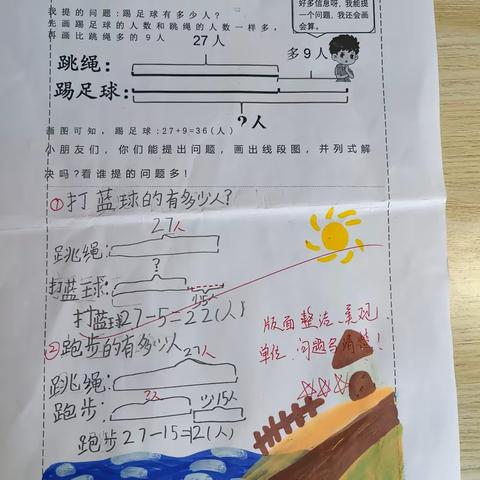 好多信息呀，我能提
一个问题，我还会画
会算。
我提的问题：踢足球有多少人？
先画踢足球的人数和跳绳的人数一样多，
再画比跳绳多的 9 人
27人
多9人
跳绳：
踢足球：
?人
画图可知，踢足球：27+9=36(人)
小朋友们，你们能提出问题，画出线段图，并列式解
决吗？看谁提的问题多！
①打蓝球的有多少人？
27人
跳绳：
?
打蓝球：
少5人
打蓝球27-5=22(人)
②跑步的有多少人
27人
跳绳：
?人
少15人
跑步：
跑步27-15=12(人)
版面整洁、美观
单位、问题写清楚！